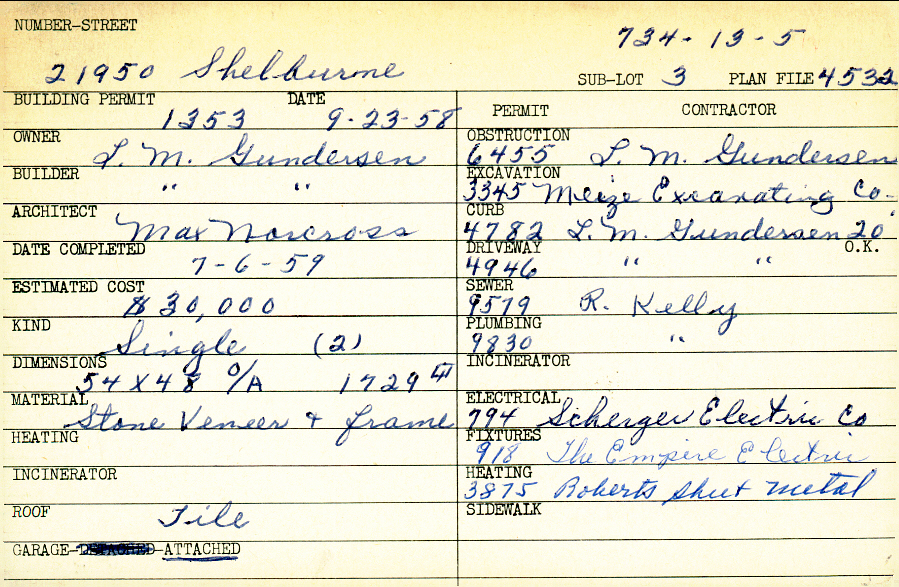 NUMBER-STREET
734-13-5
21950 Shelburne
SUB-LOT 3 PLAN FILE 4532
BUILDING PERMIT DATE
1353 9-23-58
OWNER
L. M. Gundersen
BUILDER
" "
ARCHITECT
Max Norcross
DATE COMPLETED
7-6-59
ESTIMATED COST
$30,000
KIND
Single (2)
DIMENSIONS
54 X 48 O/A 1729
MATERIAL
Stone Veneer & frame
HEATING
INCINERATOR
ROOF
Tile
GARAGE-DETACHED-ATTACHED
PERMIT CONTRACTOR
OBSTRUCTION
6455 L. M. Gundersen
EXCAVATION
3345 Meize Excavating Co.
CURB
4782 L. M. Gundersen 20
DRIVEWAY O.K.
4946 " "
SEWER
9579 R. Kelly
PLUMBING
9830 "
INCINERATOR
ELECTRICAL
794 Scherger Electric Co
FIXTURES
918 The Empire Electric
HEATING
3875 Roberts Sheet Metal
SIDEWALK